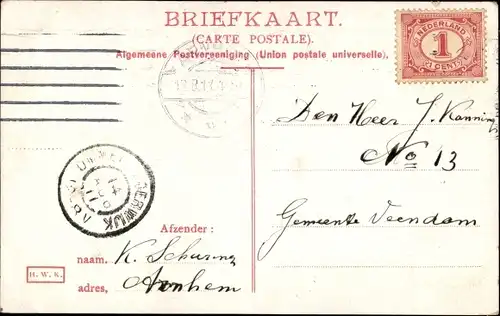 BRIEFKAART.
(CARTE POSTALE).
Algemeene Postvereeniging (Union postale universelle),
NEDERLAND
1
CENT
Den Heer J. Kanning
No 13
Gemeente Veendam
14
11
Afzender:
naam, K. Schuring
adres, Arnhem
H. W. K.